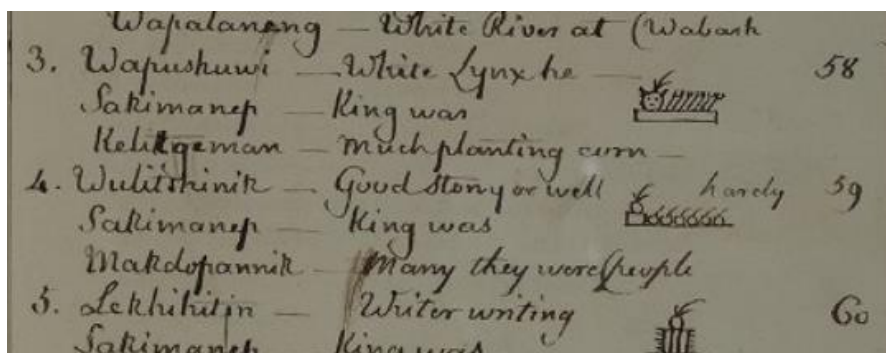 Wapalaneng — White River at (Wabash
3. Wapushuwi — White Lynx he — 58
Sakimanep — King was
Kehitgeman — much planting corn —
4. Wulitshinik — Good stony or well hardy 59
Sakimanep — King was
Makdopannik — Many they were (people
5. Lekhihitin — Writer writing 60
Sakimanep — King was